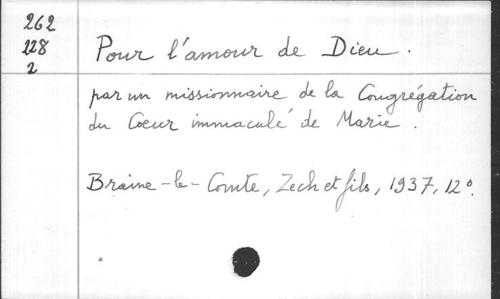 262
228
2
Pour l'amour de Dieu.
par un missionnaire de la Congrégation
du Coeur immaculé de Marie.
Braine-le-Comte, Zech et fils, 1937, 12°.